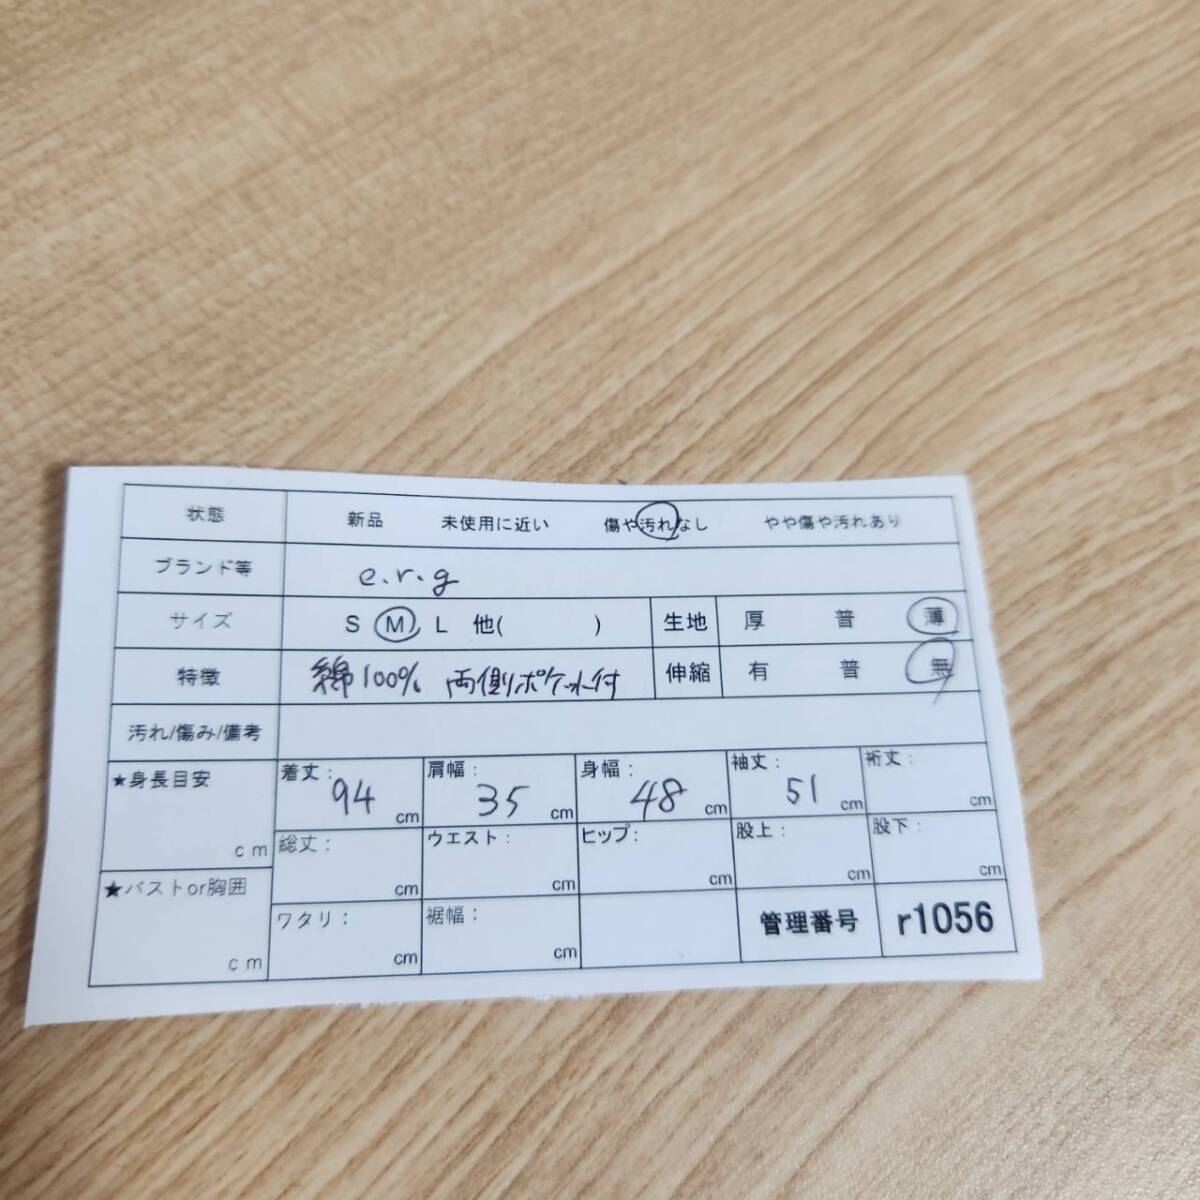 状態 新品 未使用に近い 傷や汚れなし やや傷や汚れあり
ブランド等 e.r.g
サイズ S M L 他( ) 生地 厚 普 薄
特徴 綿100% 両側ポケット付 伸縮 有 普 無
汚れ/傷み/備考
★身長目安 cm 着丈: 94 cm 肩幅: 35 cm 身幅: 48 cm 袖丈: 51 cm 裄丈: cm
総丈: cm ウエスト: cm ヒップ: cm 股上: cm 股下: cm
★バストor胸囲 cm ワタリ: cm 裾幅: cm 管理番号 r1056